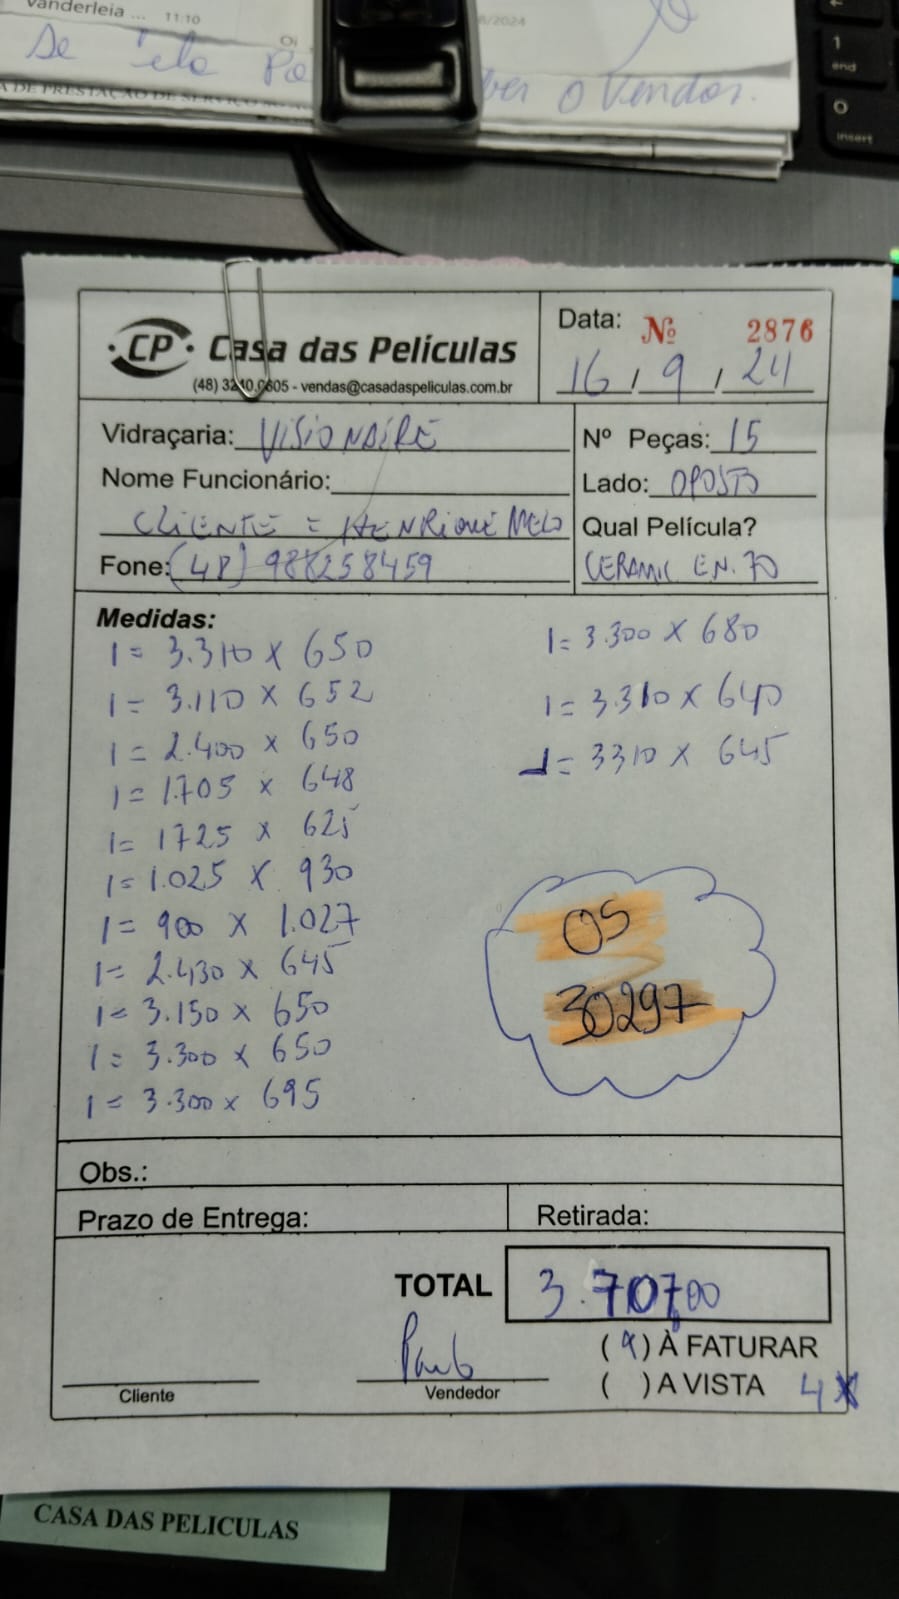 Vanderleia ... 11:10
/2024
Oi
Se Tela Pa
ber o Vendor.
A DE PRESTAÇÃO DE SERVIÇO
1
end
0
insert
CP Casa das Películas
(48) 3240.0605 - vendas@casadaspeliculas.com.br
Data: Nº 2876
16 / 9 / 24
Vidraçaria: VISIONAIRE
Nome Funcionário:
CLIENTE = HENRIQUE MELO
Fone: (48) 988258459
Nº Peças: 15
Lado: OPOSTO
Qual Película?
CERAMIC EN. 70
Medidas:
1 = 3.310 x 650
1 = 3.110 x 652
1 = 2.400 x 650
1 = 1.705 x 648
1 = 1725 x 625
1 = 1.025 x 930
1 = 900 x 1.027
1 = 2.430 x 645
1 = 3.150 x 650
1 = 3.300 x 650
1 = 3.300 x 695
1 = 3.300 x 680
1 = 3.310 x 640
1 = 3310 x 645
OS
30297
Obs.:
Prazo de Entrega:
Retirada:
TOTAL 3.707,00
Paulo
Cliente
Vendedor
(X) À FATURAR
( ) A VISTA 4X
CASA DAS PELICULAS